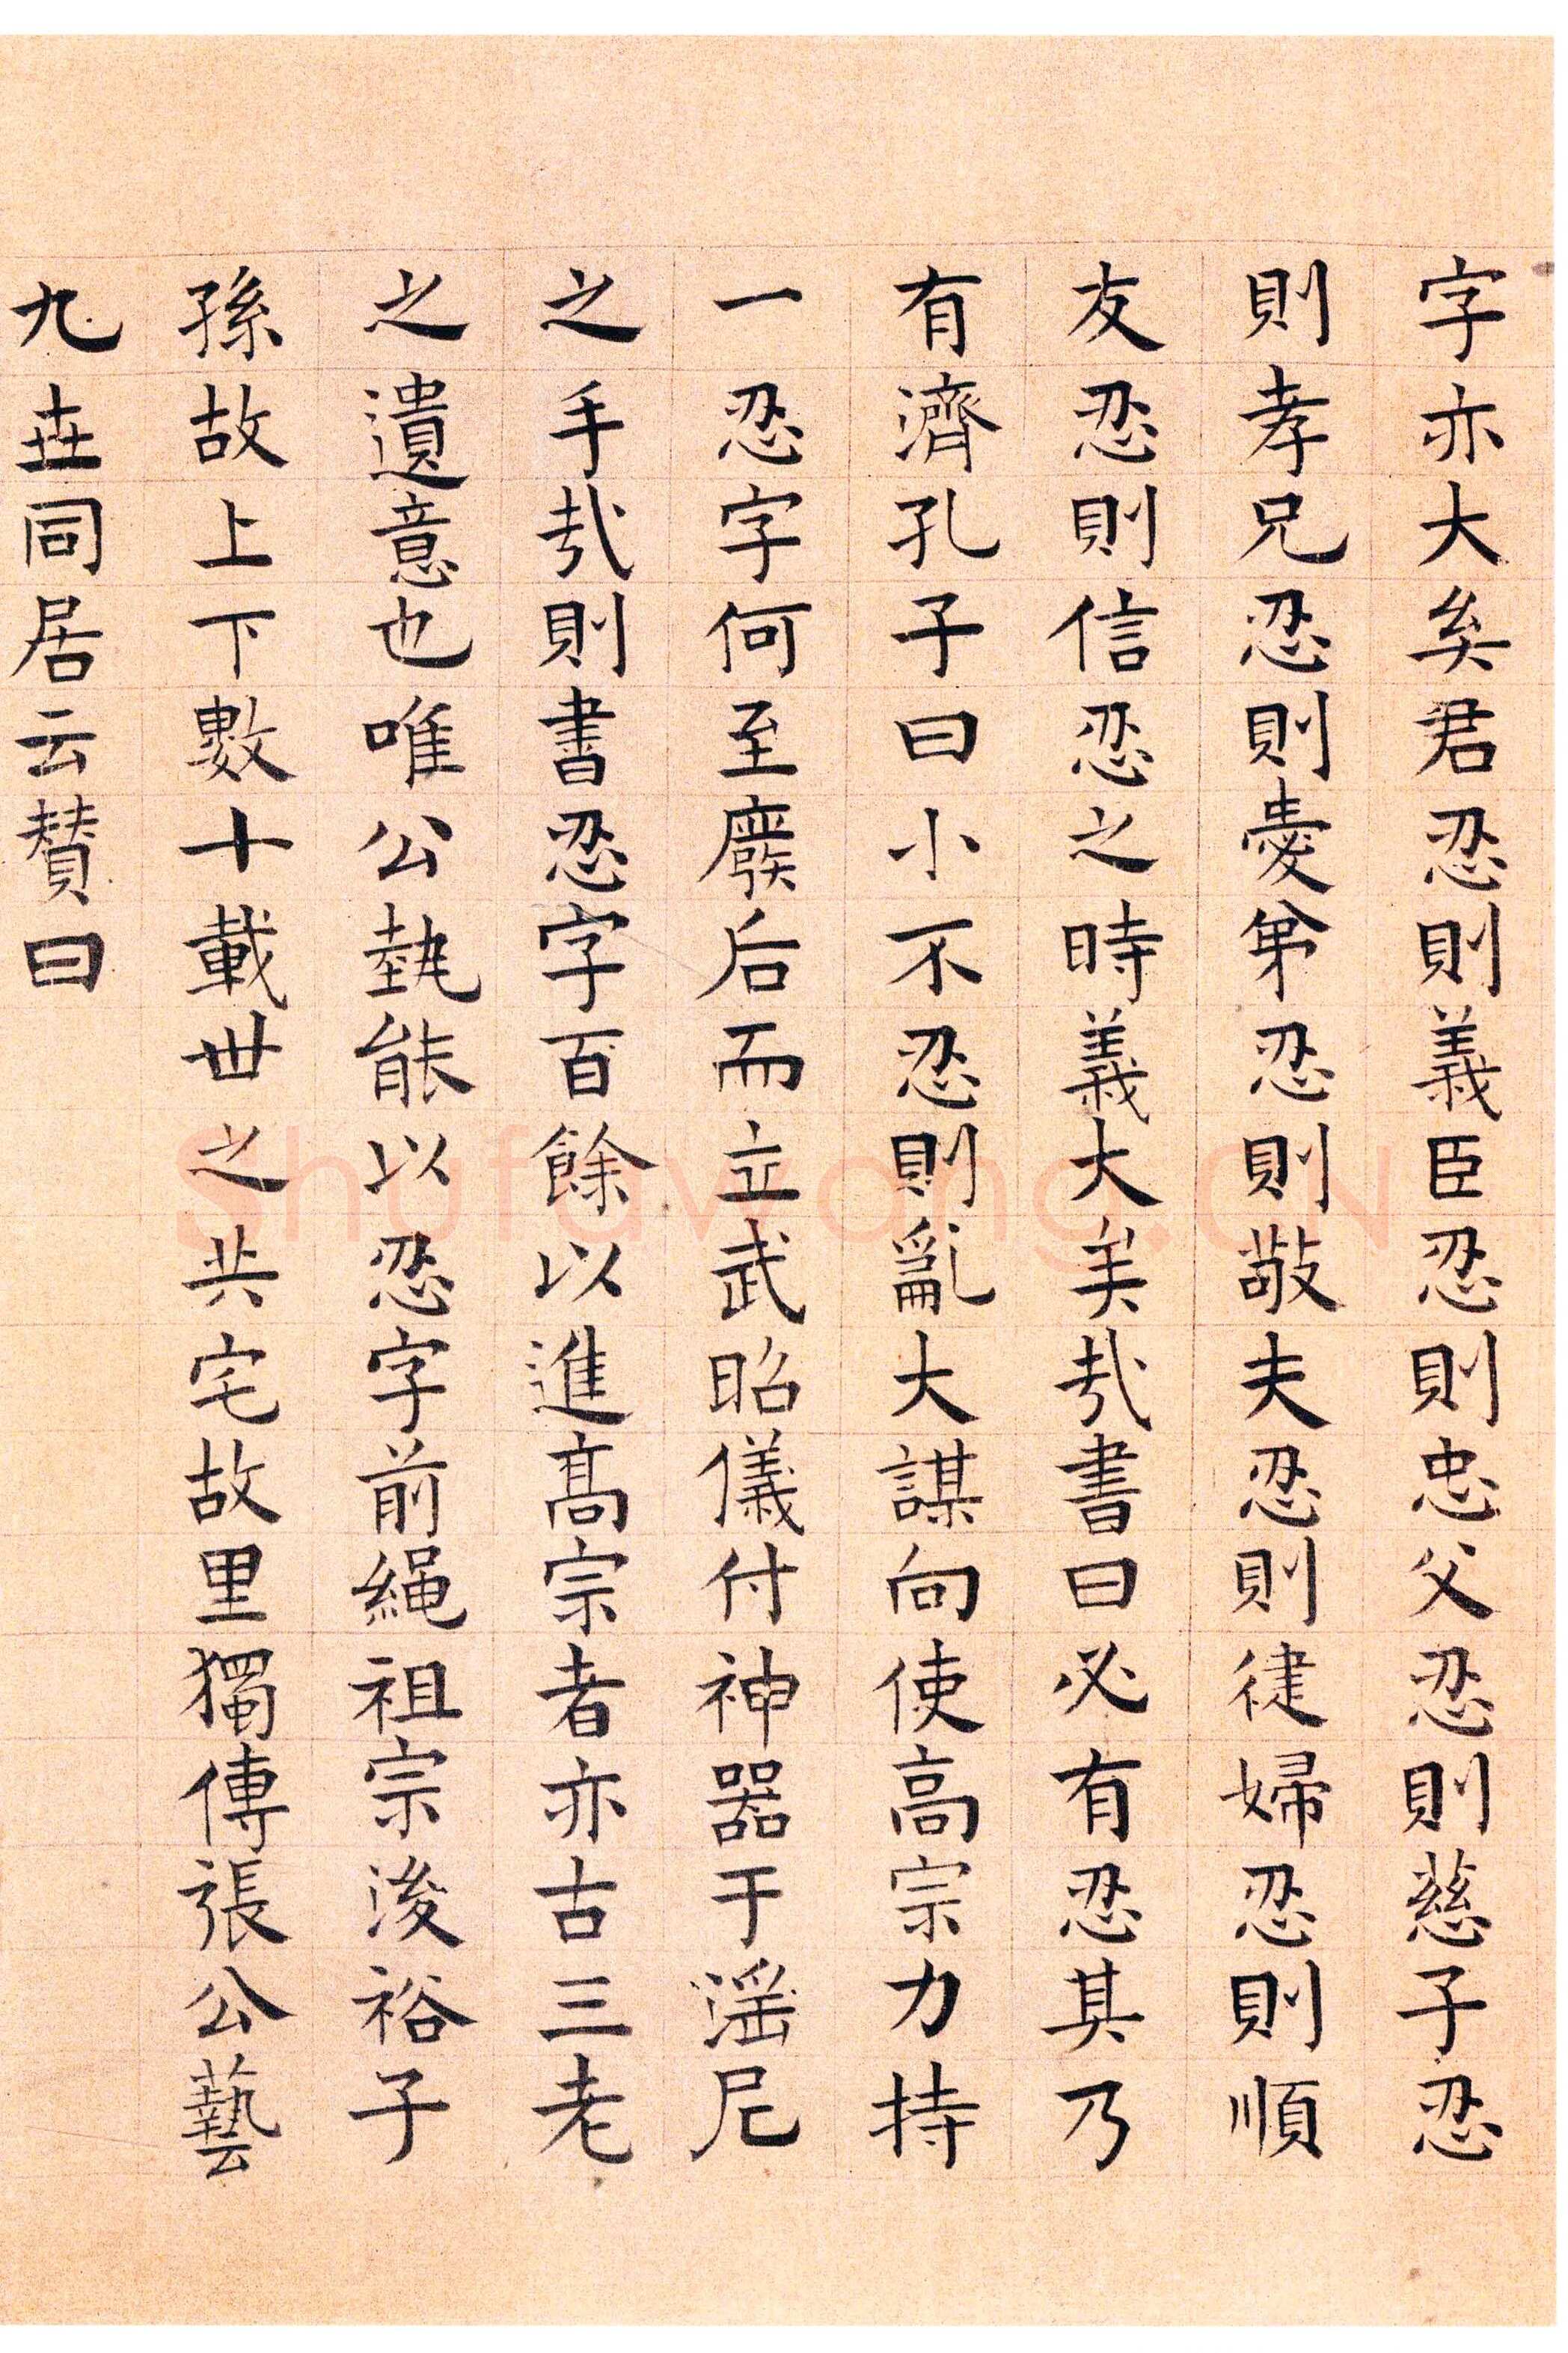 字亦大矣君忍則義臣忍則忠父忍則慈子忍
則孝兄忍則愛弟忍則敬夫忍則徤婦忍則順
友忍則信忍之時義大矣哉書曰必有忍其乃
有濟孔子曰小不忍則亂大謀向使高宗力持
一忍字何至廢后而立武昭儀付神器于滛尼
之手哉則書忍字百餘以進髙宗者亦古三老
之遺意也唯公執能以忍字前繩祖宗後裕子
孫故上下數十載世之共宅故里獨傳張公藝
九世同居云賛曰
Shufawang.CN